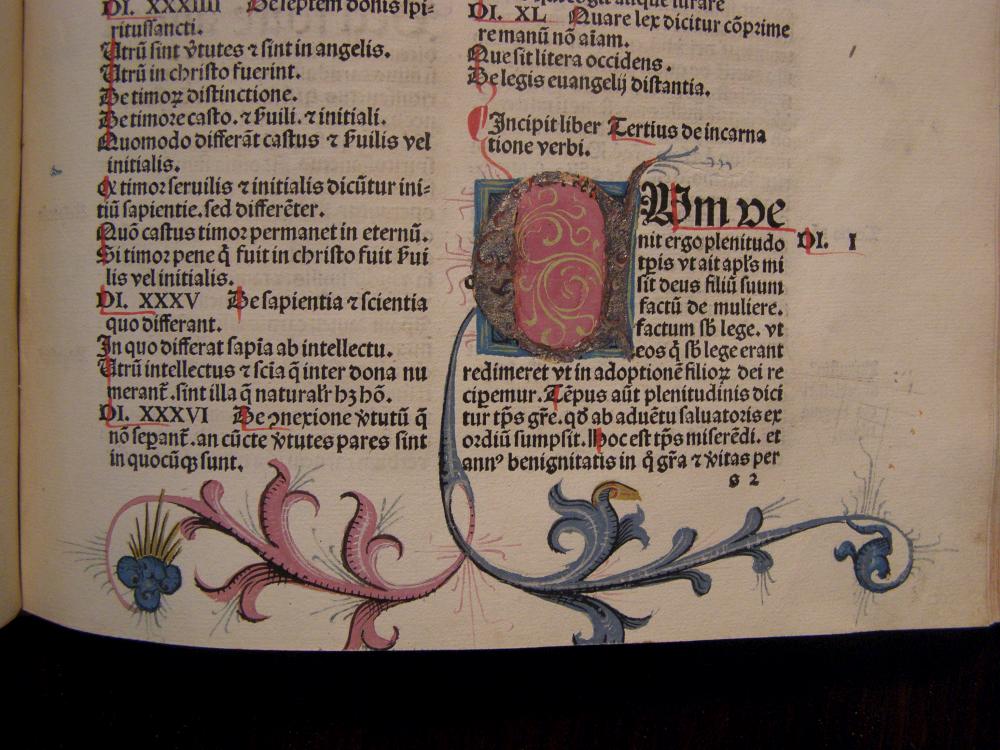 DI. XXXIIII De septem donis spi-
ritussancti.
Utrū sint v̄tutes ⁊ sint in angelis.
Utrū in christo fuerint.
De timoꝝ distinctione.
De timore casto. ⁊ ẜuili. ⁊ initiali.
Quomodo differāt castus ⁊ ẜuilis vel
initialis.
Q timor seruilis ⁊ initialis dicūtur ini-
tiū sapientie. sed differēter.
Quō castus timor permanet in eternū.
Si timor pene q̄ fuit in christo fuit ẜui
lis vel initialis.
DI. XXXV De sapientia ⁊ scientia
quo differant.
In quo differat sapīa ab intellectu.
Utrū intellectus ⁊ scīa q̄ inter dona nu
merant̄. sint illa q̄ naturalr̄ hꝫ hō.
DI. XXXVI De ꝯnexione v̄tutū q̄
nō sepant̄. an cūcte v̄tutes pares sint
in quocūqꝫ sunt.
aliquę iurare
DI. XL Quare lex dicitur cōprime
re manū nō aīam.
Que sit litera occidens.
De legis euangelij distantia.
Incipit liber Tertius de incarna
tione verbi.
CUm ve
nit ergo plenitudo
tp̄is vt ait apl̄s mi
sit deus filiū suum
factū de muliere.
factum sb̄ lege. vt
eos q̄ sb̄ lege erant
redimeret vt in adoptionē filioꝝ dei re
cipemur. Tēpus aūt plenitudinis dici
tur tp̄s gr̄e. qd̄ ab aduētu saluatoris ex
ordiū sumpsit. Hoc est tp̄s miserēdi. et
annꝰ benignitatis in q̄ gr̄a ⁊ v̄itas per
DI. I
g 2